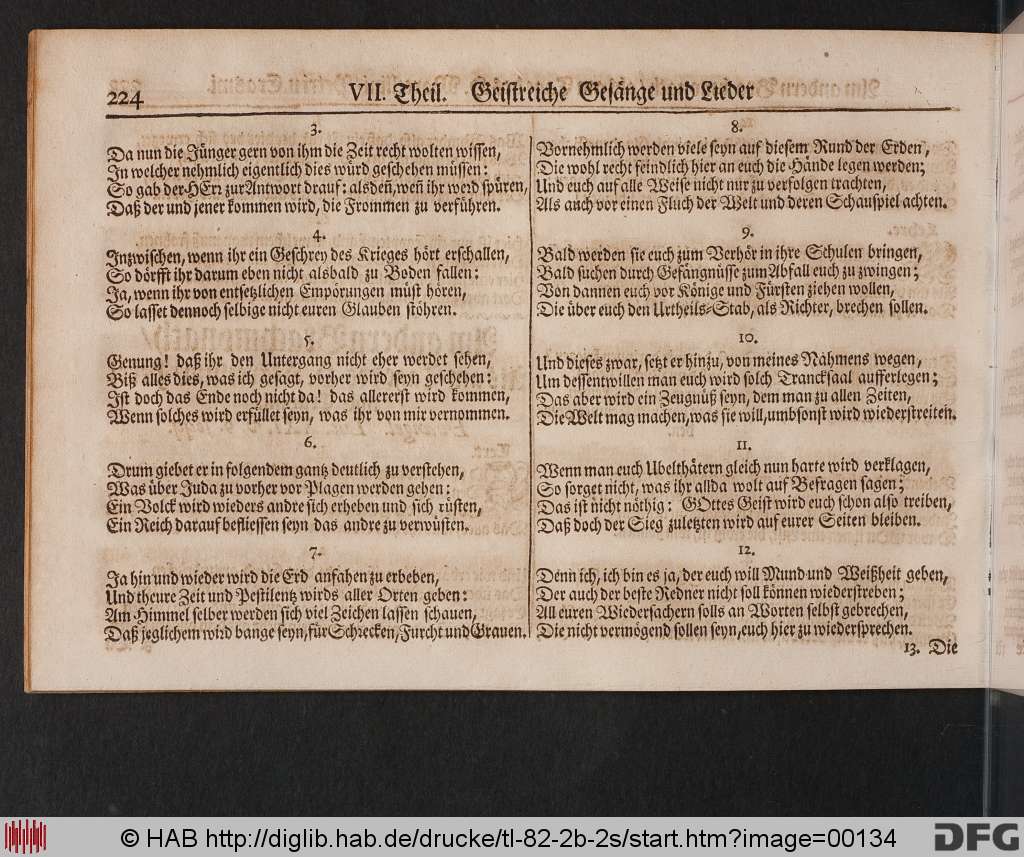 224
VII. Theil. Geistreiche Gesänge und Lieder
3.
Da nun die Jünger gern von ihm die Zeit recht wolten wissen,
In welcher nehmlich eigentlich dies würd geschehen müssen:
So gab der HErr zur Antwort drauf: alsdeñ, weñ ihr werd spüren,
Daß der und jener kommen wird, die Frommen zu verführen.
4.
Inzwischen, wenn ihr ein Geschrey des Krieges hört erschallen,
So dörfft ihr darum eben nicht alsbald zu Boden fallen:
Ja, wenn ihr von entsetzlichen Empörungen müst hören,
So lasset dennoch selbige nicht euren Glauben stöhren.
5.
Genung! daß ihr den Untergang nicht eher werdet sehen,
Biß alles dies, was ich gesagt, vorher wird seyn geschehen:
Ist doch das Ende noch nicht da! das allererst wird kommen,
Wenn solches wird erfüllet seyn, was ihr von mir vernommen.
6.
Drum giebet er in folgendem gantz deutlich zu verstehen,
Was über Juda zu vorher vor Plagen werden gehen:
Ein Volck wird wieders andre sich erheben und sich rüsten,
Ein Reich darauf beflissen seyn das andre zu verwüsten.
7.
Ja hin und wieder wird die Erd anfahen zu erbeben,
Und theure Zeit und Pestilentz wirds aller Orten geben:
Am Himmel selber werden sich viel Zeichen lassen schauen,
Daß jeglichem wird bange seyn, für Schrecken, Furcht und Grauen.
8.
Vornehmlich werden viele seyn auf diesem Rund der Erden,
Die wohl recht feindlich hier an euch die Hände legen werden;
Und euch auf alle Weise nicht nur zu verfolgen trachten,
Als auch vor einen Fluch der Welt und deren Schauspiel achten.
9.
Bald werden sie euch zum Verhör in ihre Schulen bringen,
Bald suchen durch Gefängnüsse zum Abfall euch zu zwingen;
Von dannen euch vor Könige und Fürsten ziehen wollen,
Die über euch den Urtheils-Stab, als Richter, brechen sollen.
10.
Und dieses zwar, setzt er hinzu, von meines Nahmens wegen,
Um dessentwillen man euch wird solch Trancksaal aufferlegen;
Das aber wird ein Zeugnüß seyn, dem man zu allen Zeiten,
Die Welt mag machen, was sie will, umbsonst wird wiederstreiten.
11.
Wenn man euch Ubelthätern gleich nun harte wird verklagen,
So sorget nicht, was ihr allda wolt auf Befragen sagen;
Das ist nicht nöthig: GOttes Geist wird euch schon also treiben,
Daß doch der Sieg zuletzten wird auf eurer Seiten bleiben.
12.
Denn ich, ich bin es ja, der euch will Mund und Weißheit geben,
Der auch der beste Redner nicht soll können wiederstreben;
All euren Wiedersachern solls an Worten selbst gebrechen,
Die nicht vermögend sollen seyn, euch hier zu wiedersprechen.
13. Die
© HAB http://diglib.hab.de/drucke/tl-82-2b-2s/start.htm?image=00134
DFG